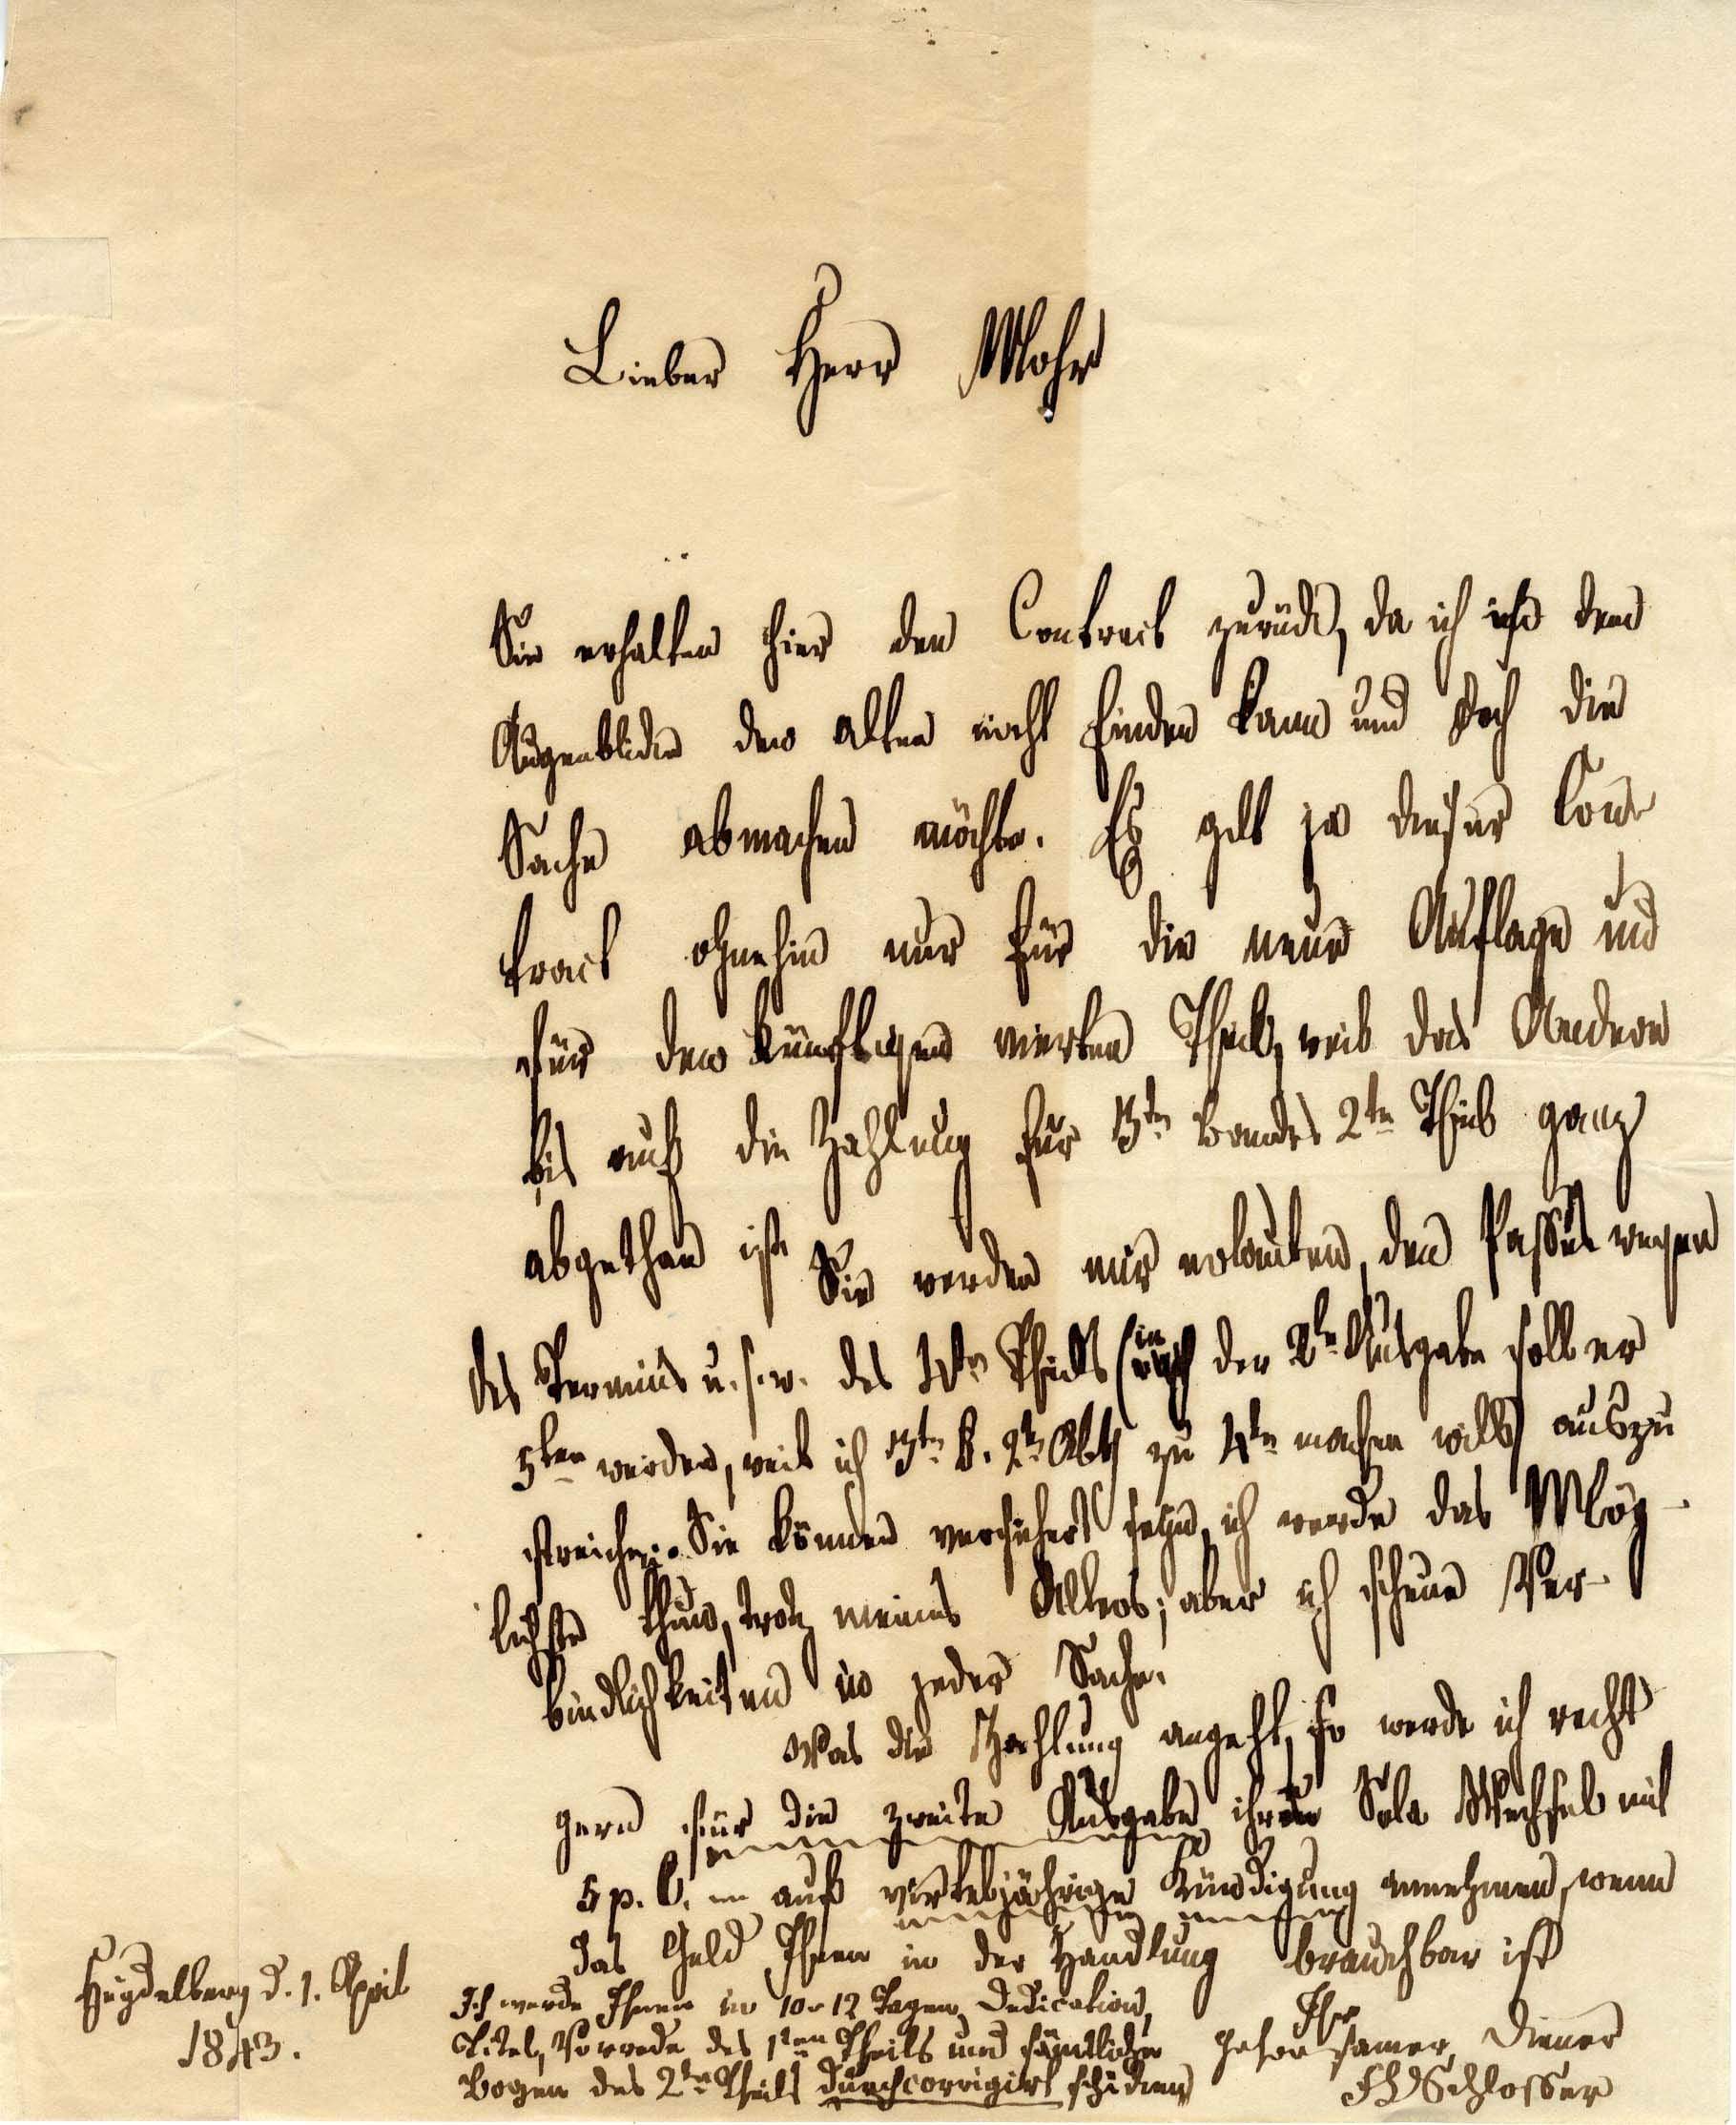 Lieber Herr Mohr
Sie erhalten hier den Contract zurück, da ich in dem
Augenblicke den alten nicht finden kann und doch die
Sache abmachen möchte. Es gilt ja dieser Con-
tract ohnehin nur für die neue Auflage und
für den künftigen vierten Theil, weil das Andere
bis auf die Zahlung für 3ten Bandes 2ten Theil ganz
abgethan ist. Sie werden mir erlauben, den Passus wegen
des Termins u. s. w. des 4ten Theils (in der 2ten Ausgabe soll er
5ter werden, weil ich 3ten B. 2te Abth zu 4ten machen will) auszu
streichen. Sie können versichert seyn, ich werde das Mög-
lichste thun, trotz meines Alters; aber ich scheue Ver-
bindlichkeiten in jeder Sache.
Was die Zahlung angeht, so werde ich recht
gern für die zweite Ausgabe ihren Sola Wechsel mit
5 p. C. auf vierteljährige Kündigung annehmen, wenn
das Geld Ihnen in der Handlung brauchbar ist
Ich werde Ihnen in 10-12 Tagen Dedication,
Titel, Vorrede des 1sten Theils und sämtliche
Bogen des 2ten Theils durchcorrigirt schicken
Ihr
gehorsamer Diener
FCSchlosser
Heydelberg d. 1. April
1843.